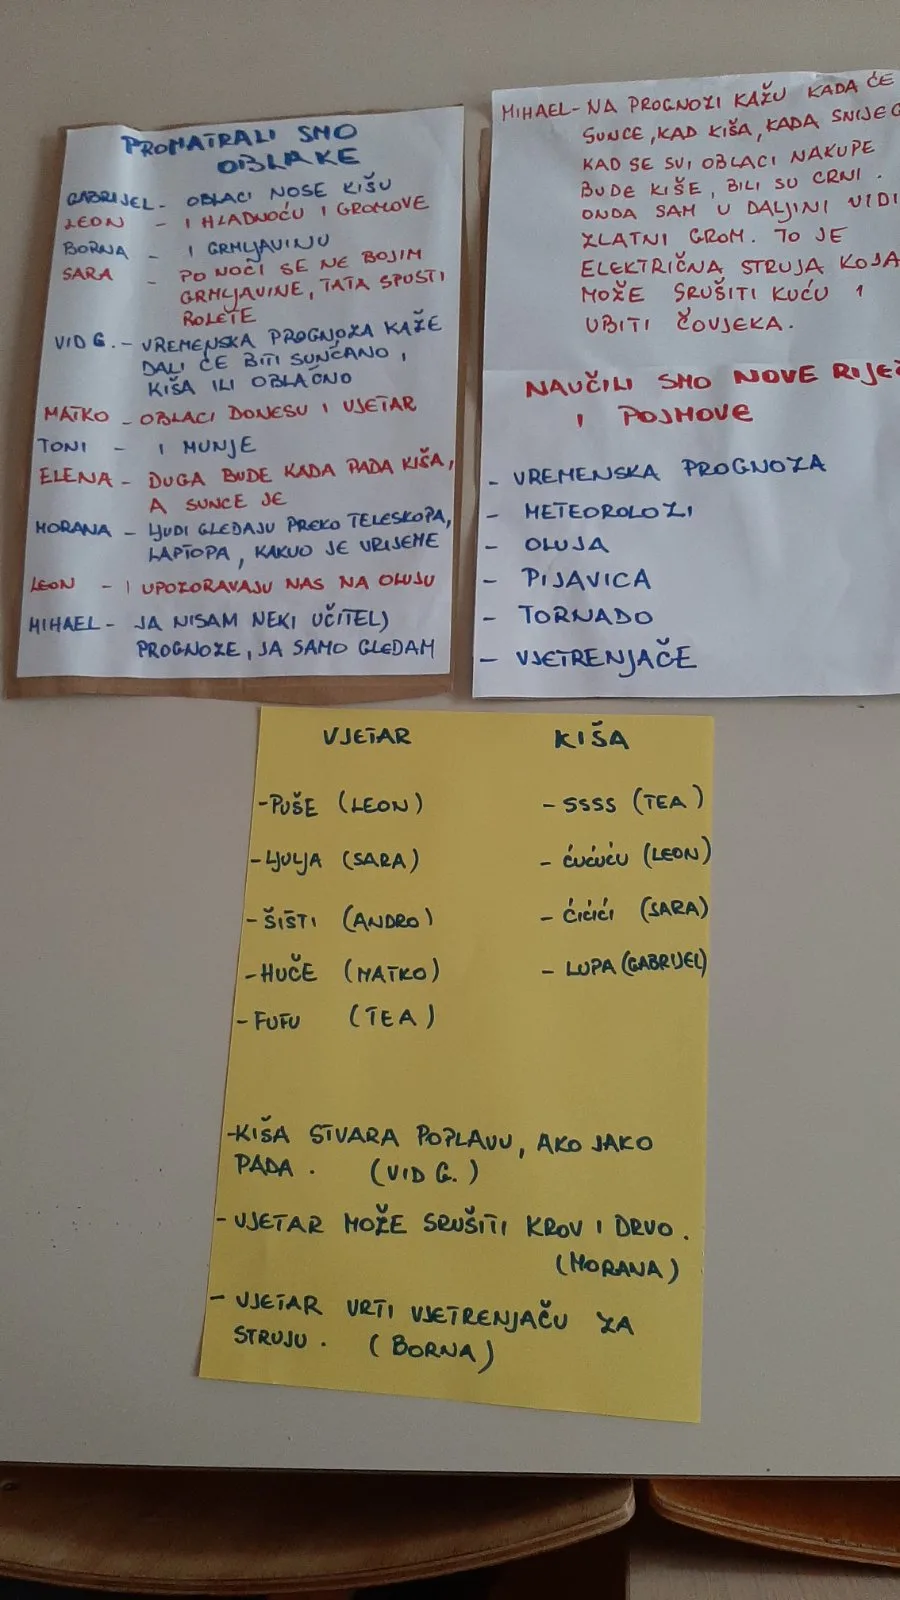 PROMATRALI SMO
OBLAKE
GABRIJEL- OBLACI NOSE KIŠU
LEON - I HLADNOĆU I GROMOVE
BORNA - I GRMLJAVINU
SARA - PO NOĆI SE NE BOJIM
GRMLJAVINE, TATA SPUSTI
ROLETE
VID G. - VREMENSKA PROGNOZA KAŽE
DALI ĆE BITI SUNČANO,
KIŠA ILI OBLAČNO
MATKO - OBLACI DONESU I VJETAR
TONI - I MUNJE
ELENA - DUGA BUDE KADA PADA KIŠA,
A SUNCE JE
MORANA - LJUDI GLEDAJU PREKO TELESKOPA,
LAPTOPA, KAKVO JE VRIJEME
LEON - I UPOZORAVAJU NAS NA OLUJU
MIHAEL - JA NISAM NEKI UČITELJ
PROGNOZE, JA SAMO GLEDAM
MIHAEL- NA PROGNOZI KAŽU KADA ĆE
SUNCE, KAD KIŠA, KADA SNIJEG
KAD SE SVI OBLACI NAKUPE
BUDE KIŠE, BILI SU CRNI.
ONDA SAM U DALJINI VIDI
ZLATNI GROM. TO JE
ELEKTRIČNA STRUJA KOJA
MOŽE SRUŠITI KUĆU I
UBITI ČOVJEKA.
NAUČILI SMO NOVE RIJEČ
I POJMOVE
- VREMENSKA PROGNOZA
- METEOROLOZI
- OLUJA
- PIJAVICA
- TORNADO
- VJETRENJAČE
VJETAR
- PUŠE (LEON)
- LJULJA (SARA)
- ŠIŠTI (ANDRO)
- HUČE (MATKO)
- FUFU (TEA)
KIŠA
- SSSS (TEA)
- ĆUĆUĆU (LEON)
- ĆIĆIĆI (SARA)
- LUPA (GABRIJEL)
- KIŠA STVARA POPLAVU, AKO JAKO
PADA. (VID G.)
- VJETAR MOŽE SRUŠITI KROV I DRVO.
(MORANA)
- VJETAR VRTI VJETRENJAČU ZA
STRUJU. (BORNA)